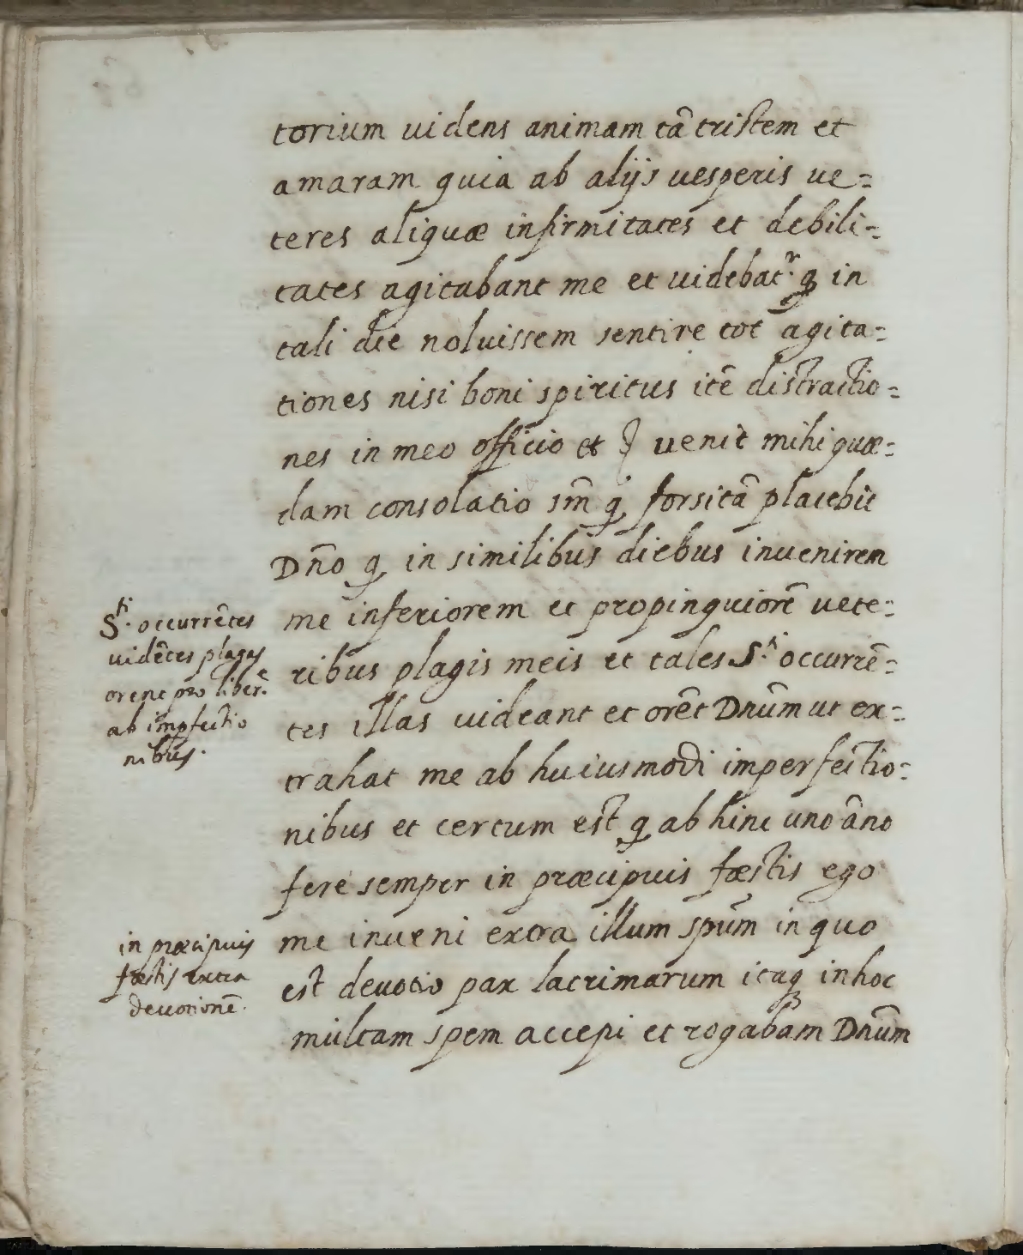 torium uidens animam tā tristem et
amaram quia ab alijs uesperis ue=
teres aliquæ infirmitates et debili=
tates agitabant me et uidebat.r q̨ in
tali die noluissem sentire tot agita=
tiones nisi boni spiritus itē distractio=
nes in meo officio et uenit mihi quæ=
dam consolatio sm̄ q̨ forsitā placebit
Dn̄o q̨ in similibus diebus inuenirem
me inferiorem et propinquiorē uete=
ribus plagis meis et tales S.ti occurrē=
tes illas uideant et orēt Dnūm ut ex=
trahat me ab huiusmodi imperfectio=
nibus et certum est q̨ ab hinc uno āno
fere semper in præcipuis fæstis ego
me inueni extra illum spūm in quo
est deuotio pax lacrimarum itaq̨ in hoc
multam spem accepi et rogabam Dnūm
S.ti occurrētes
uidētes plagas
orent pro liber.e
ab imp̱fectio
nibus.
in præcipuis
fæstis extra
deuotionē.